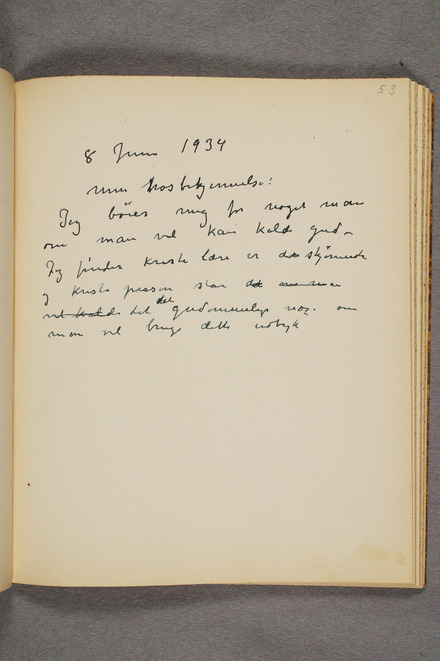 53
8 Juni 1934
min trosbekjennelse:
Jeg böier mig for noget man
om man vil kan kalde gud –
Jeg finder kristi lære er det skjönneste
og kristi person står det
vil kalde det det guddommelige nær. om
man vil bruge dette udtryk